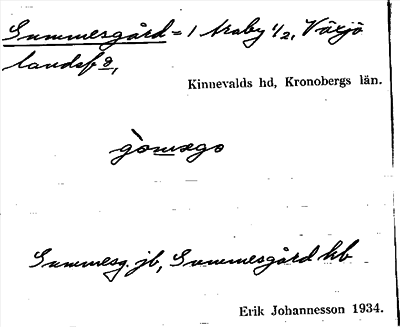 Gummesgård = 1 Araby 1/2, Växjö
landsf 8,
Kinnevalds hd, Kronobergs län.
gòmsgo
Gummesg. jb, Gummesgård kb
Erik Johannesson 1934.